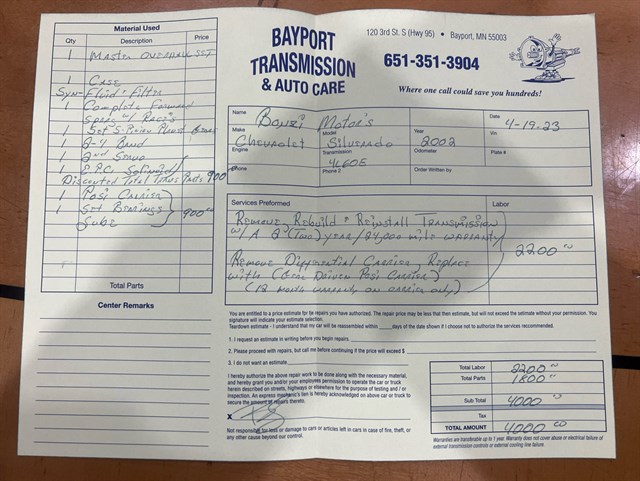 BAYPORT
TRANSMISSION
& AUTO CARE
120 3rd St. S (Hwy 95) • Bayport, MN 55003
651-351-3904
Where one call could save you hundreds!
Material Used
Qty Description Price
1 Master Overhaul Set
1 Case
Syn- Fluid + Filter
1 Complete Forward
Sprag w/ Races
1 Set 5-Pinion Planet
1 2-4 Band
1 2nd Servo
1 E.P.C. Solenoid
Discounted Total Trans Parts 900
1 Posi Carrier
1 Set Bearings 900.00
Lube
Total Parts
Center Remarks
Name Bonzi Motor's
Date 4-19-23
Make Chevrolet
Model Silverado
Year 2002
Vin
Engine
Transmission 4L60E
Odometer
Plate #
Phone
Phone 2
Order Written by
Services Preformed Labor
Remove, Rebuild + Reinstall Transmission
w/ A 2 (Two) year / 24,000 mile warranty
2200.00
Remove Differential Carrier, Replace
with (Gear Driven Posi Carrier)
(12 month warranty on carrier only)
You are entitled to a price estimate for tje repairs you have authorized. The repair price may be less that then estimate, but will not exceed the setimate without your permission. You
signature will indicate your estimate selection.
Teardown estimate - I understand that my car will be reassembled within ____ days of the date shown if I choose not to authorize the services reccommended.
1. I request an estimate in writing before you begin repairs.
2. Please proceed with repairs, but call me before continuing if the price will exceed $
3. I do not want an estimate.
I hereby authorize the above repair work to be done along with the necessary material,
and hereby grant you and/or your employees permission to operate the car or truck
herein described on streets, highways or elsewhere for the purpose of testing and / or
inspection. An express mechanic's lien is hereby acknowledged on above car or truck to
secure the amount of repairs thereto.
X
Not responsible for loss or damage to cars or articles left in cars in case of fire, theft, or
any other cause beyond our control.
Total Labor 2200.00
Total Parts 1800.00
Sub Total 4000.00
Tax
TOTAL AMOUNT 4000.00
Warranties are transferable up to 1 year. Warranty does not cover abuse or electrical failure of
external transmission controls or external cooling line failure.